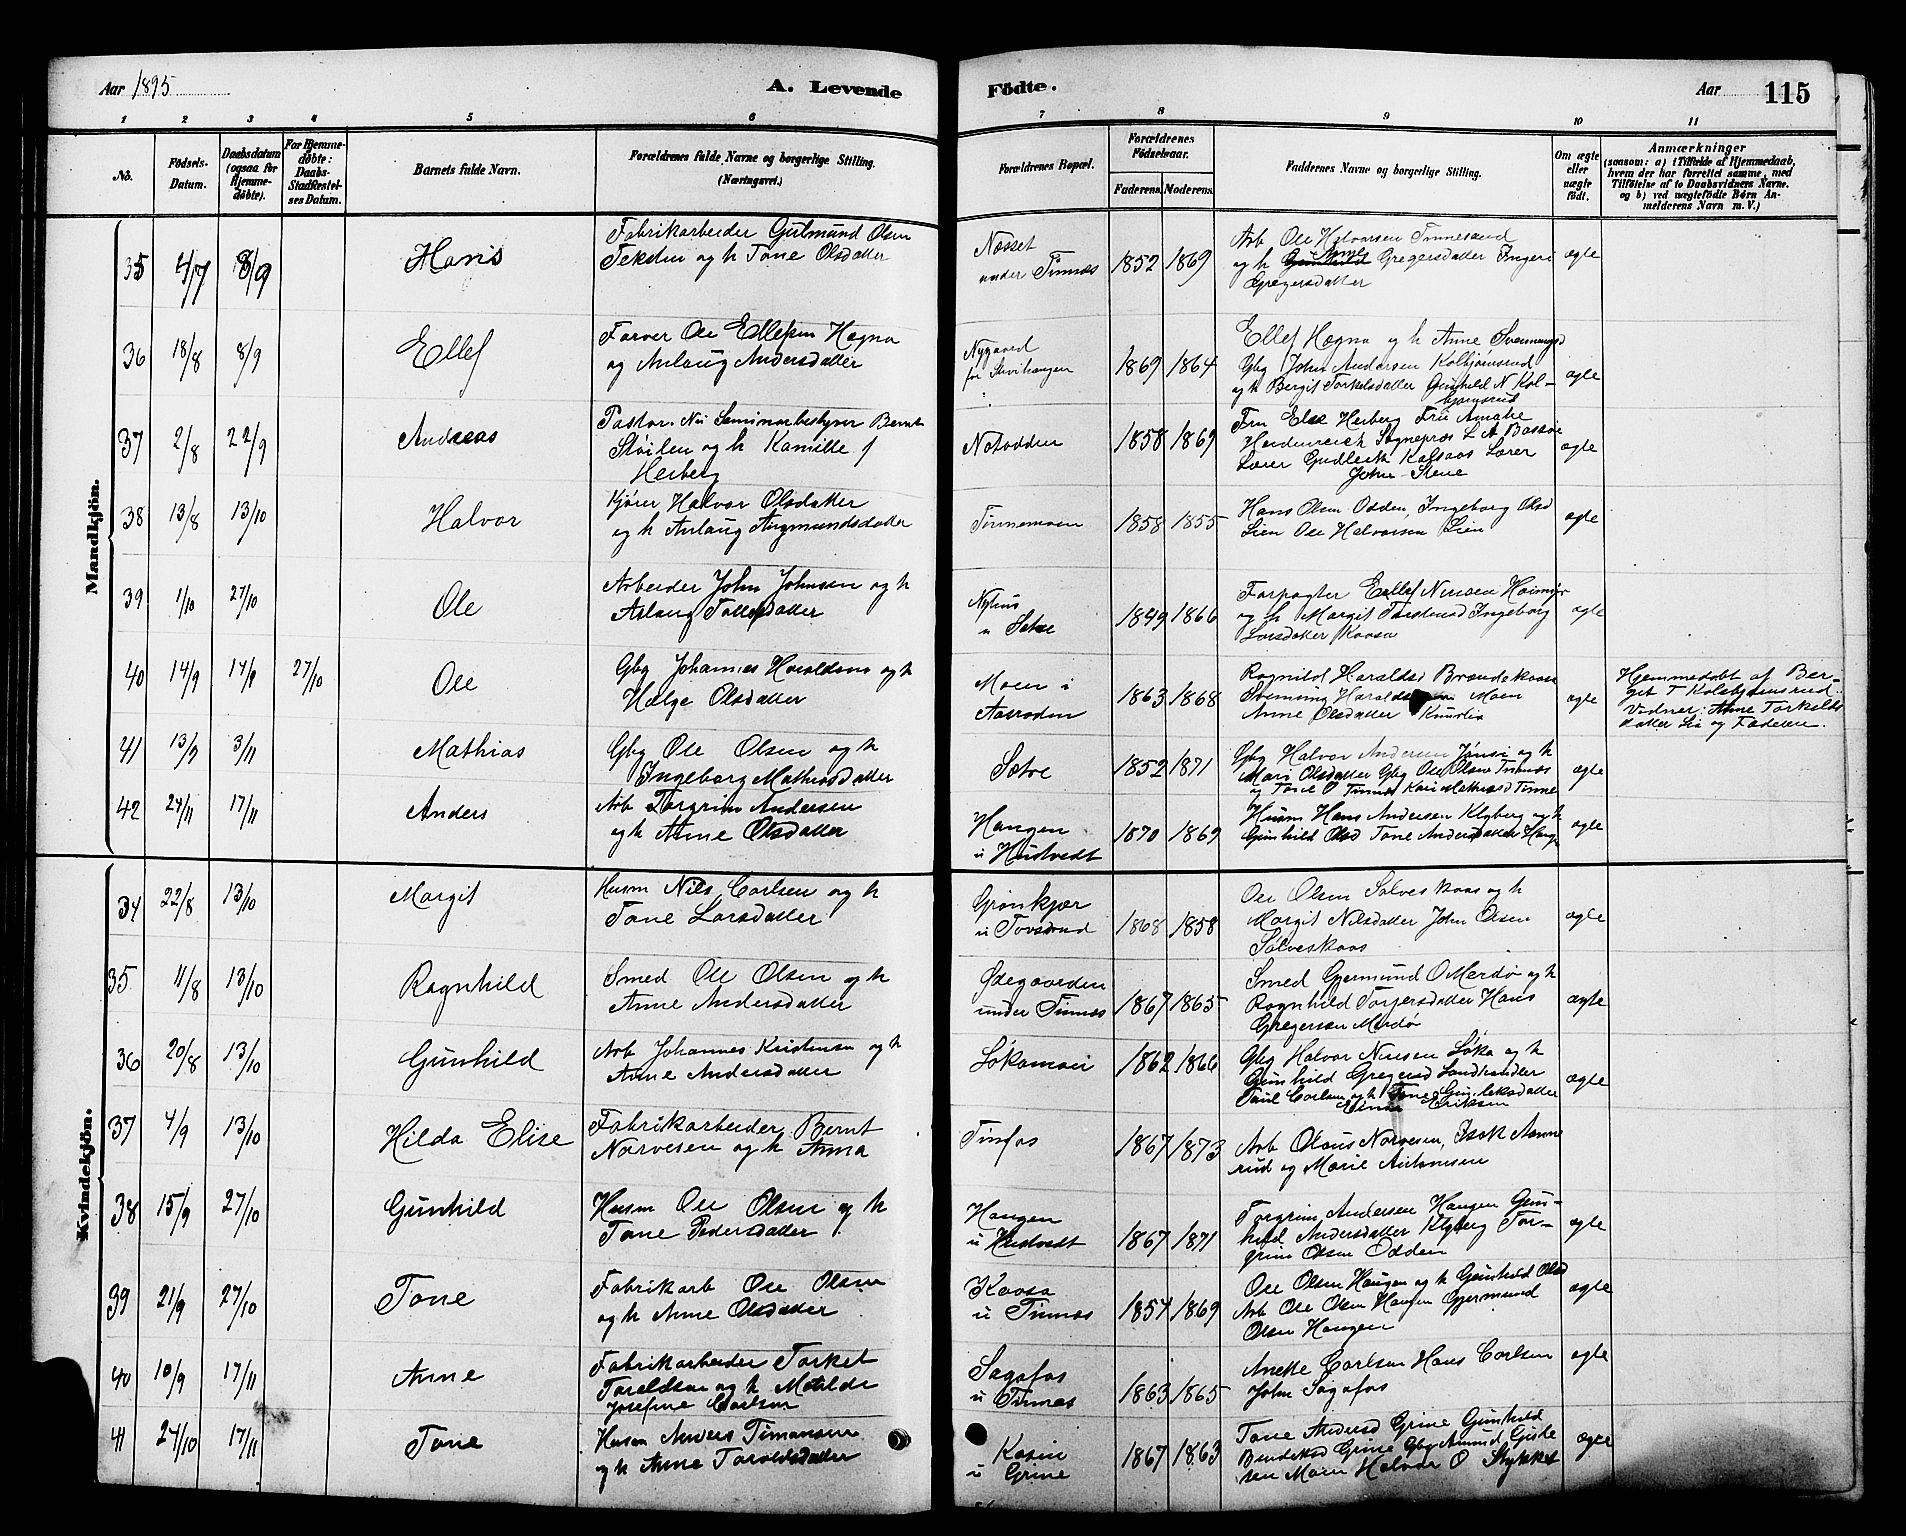 Aar 1895
A. Levende
Födte.
Aar 115
1 2 3 4 5 6 7 8 9 10 11
No.
Födsels-
Datum.
Daabsdatum
(ogsaa for
Hjemme-
döbte).
For Hjemme-
döbte:
Daabs-
Stadfæstel-
ses Datum.
Barnets fulde Navn.
Forældrenes fulde Navne og borgerlige Stilling.
(Næringsvei.)
Forældrenes Bopæl.
Forældrenes
Födselsaar.
Faderens. Moderens.
Faddernes Navne og borgerlige Stilling.
Om ægte
eller
uægte
födt.
Anmærkninger
(saasom: a) i Tilfælde af Hjemmedaab,
hvem der har forrettet samme, med
Tilföielse af to Daabsvidners Navne.
og b) ved uægtefödte Börn An-
melderens Navn m. V.)
Mandkjön.
35 4/7 8/9 Hans
Fabrikarbeider Gutmund Olsen
og h Tone Olsdatter
Næsset
under Tinnæs
1852 1869
Arb Ole Halvorsen Tinnesand
og h Anne Gregersdatter Ingeri
Gregersdatter
ægte
36 18/8 8/9 Ellef
Farver Ole Ellefsen Hægna
og Anlaug Andersdatter
Nygaard
1869 1864
Ellef Hægna og h Anne Svennungsd
Gbg John Andersen Kolbjørnsrud
og h Bergit Torkelsdatter Gunhild N Kol-
bjørnsrud
ægte
37 2/8 22/9 Andreas
Pastor. Nu Seminarbestyrer Bernt
Støilen og h Kamilla f
Herberg
Notodden
1858 1869
Fru Else Herberg Frü Amalie
Heidenreich Sognepræs L A Bassøe
Lærer Gudleik Kalsaas Lærer
John Stene
ægte
38 13/8 13/10 Halvor
Kjører Halvor Olsdatter
og h Anlaug Angmundsdatter
Tinnemoen
1858 1855
Hans Olsen Odden, Ingeborg Olsd
Lien Ole Halvorsen Lien
ægte
39 1/10 27/10 Ole
Arbeider John Johnsen og h
Aslaug Tollefsdatter
Nyhus
u Sætre
1849 1866
Forpagter Ellef Nirisen Haimyr
og h Margit Torstensd Ingeborg
Larsdatter Kaasa
ægte
40 14/9 14/9 27/10 Ole
Gbg Johannes Haraldsen og h
Hælge Olsdatter
Moen i
1863 1868
Rognild Haraldsd Brændekaasa
Svennung Haralds Moen
Anne Olsdatter Knurlia
ægte
Hjemmedøbt af Ber-
get T Kolsbjørnsrud.
Vidner: Anne Torkelds
datter Lia og Faderen.
41 13/9 3/11 Mathias
Gbg Ole Olsen og h
Ingeborg Mathiasdatter
Sætre
1852 1871
Gbg Halvor Andersen og h
Mari Olsdatter Gbg Ole Olsen Tinnæs
og Tone O Tinnæs Kari Mathiasd Tinne
ægte
42 24/11 17/11 Anders
Arb Torgrim Andersen
og h Anne Olsdatter
Haugen
u Hustvedt
1870 1869
Husm Hans Andersen Klyberg og h
Gunhild Olsd Tone Andersdatter Haug
ægte
Kvindekjön.
34 22/8 13/10 Margit
Husm Nils Carlsen og h
Tone Larsdatter
Grønkjær
u Tovsrud
1868 1858
Ole Olsen Sølveskaas og h
Margit Nilsdatter John Olsen
Sølveskaas
ægte
35 11/8 13/10 Ragnhild
Smed Ole Olsen og h
Anne Andersdatter
Ødegaarden
under Tinnæs
1867 1865
Smed Gjermund O Merdø og h
Ragnhild Torgersdatter Hans
Gregersen Merdø
ægte
36 20/8 13/10 Gunhild
Arb Johannes Kristensen og h
Anne Andersdatter
Løkamoei
1862 1866
Gbg Halvor Nirisen Løka og h
Gunhild Gregersd Landsender
Paul Carlsen og h Tone Gunleksdatter
Eriksen
ægte
37 4/9 13/10 Hilda Elise
Fabrikarbeider Bernt
Narvesen og h Anna
Tinfos
1867 1873
Arb Olaus Narvesen, Isak Aanne
rud og Marie Antonesen
38 15/9 27/10 Gunhild
Husm Ole Olsen og h
Tone Pedersdatter
Haugen
u Hustvedt
1867 1871
Torgrim Andersen Haugen Gun-
hild Andersdatter Klyberg Tor-
grim Olsen Odden
ægte
39 21/9 27/10 Tone
Fabrikarb Ole Olsen
og h Anne Olsdatter
Kaasa
u Tinnæs
1857 1869
Ole Olsen Haugen og h Gunhild Olsd
Arb Ole Olsen Haugen Gjermund
Olsen Haugen
ægte
40 10/9 17/11 Anne
Fabrikarbeider Torket
Toreldsen og h Matilde
Josefine Carlsen
Sagafos
u Tinnæs
1863 1865
Anette Carlsen Hans Carlsen
John Sagafos
ægte
41 24/10 17/11 Tone
Husm Anders Timansen
og h Anne Taraldsdatter
Kåsin
u Grine
1867 1863
Tone Andersd Grine Gunhild
Bendiksd Grine Gbg Amund Gisle
sen Moen Halvor O Stykket
ægte